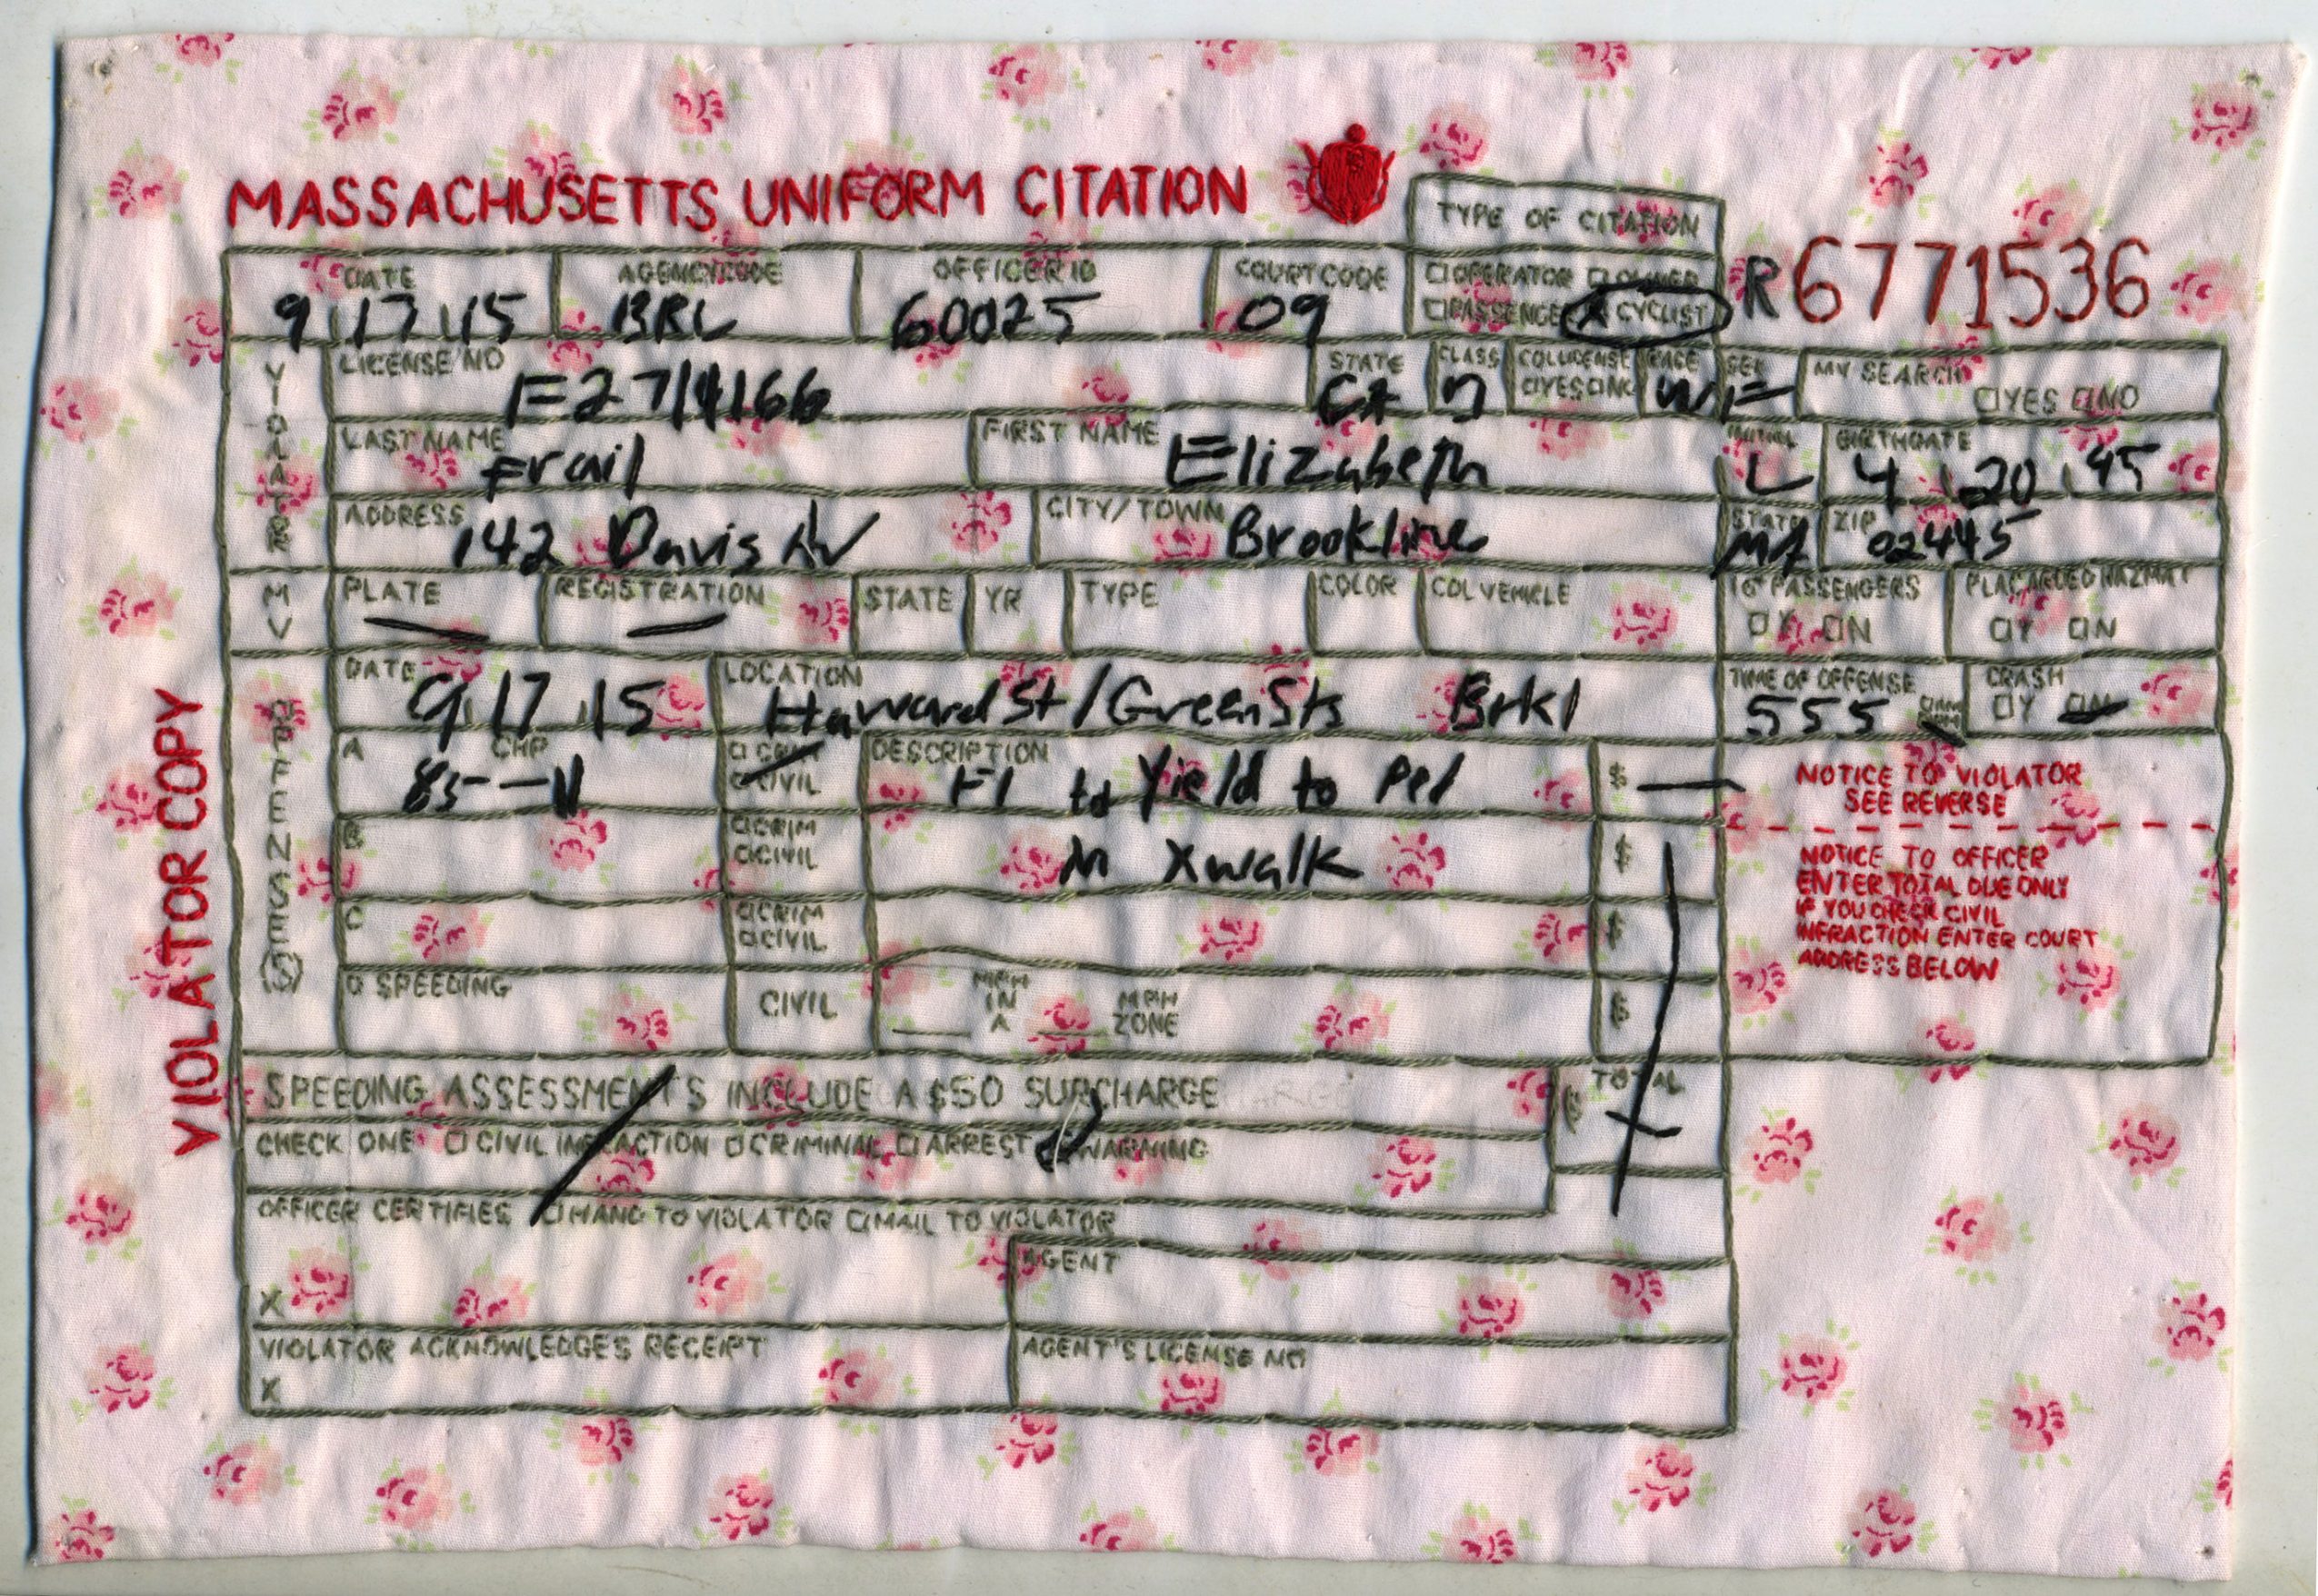 MASSACHUSETTS UNIFORM CITATION
TYPE OF CITATION
R6771536
DATE AGENCY CODE OFFICER ID COURT CODE □OPERATOR □OWNER
9 17 15 BRL 60025 09 □PASSENGE X CYCLIST
VIOLATR
LICENSE NO STATE CLASS RACE SEX MV SEARCH
□YES □NO
CA D W F □YES □NO
LAST NAME FIRST NAME INITIAL BIRTHDATE
Frail Elizabeth L 4 20
ADDRESS CITY/TOWN STATE ZIP
142 Davis Av Brookline MA 02445
MV
PLATE REGISTRATION STATE YR TYPE COLOR COL VEHICLE 16+ PASSENGERS PLACARDED HAZMAT
□Y □N □Y □N
OFFENSE(S)
DATE LOCATION TIME OF OFFENSE CRASH
9 17 15 Harvard St/Green Sts Brkl 555 □Y □N
A CHP DESCRIPTION $
85 CIVIL Fl to Yield to Ped
B □CRIM $
□CIVIL In Xwalk
C □CRIM $
□CIVIL
D SPEEDING CIVIL MPH IN A MPH ZONE $
NOTICE TO VIOLATOR
SEE REVERSE
NOTICE TO OFFICER
ENTER TOTAL DUE ONLY
IF YOU CHECK CIVIL
INFRACTION ENTER COURT
ADDRESS BELOW
SPEEDING ASSESSMENTS INCLUDE A $50 SURCHARGE TOTAL
$
CHECK ONE □CIVIL INFRACTION □CRIMINAL □ARREST □WARNING
OFFICER CERTIFIES □HAND TO VIOLATOR □MAIL TO VIOLATOR
X
AGENT
VIOLATOR ACKNOWLEDGES RECEIPT
X
AGENT'S LICENSE NO
VIOLATOR COPY